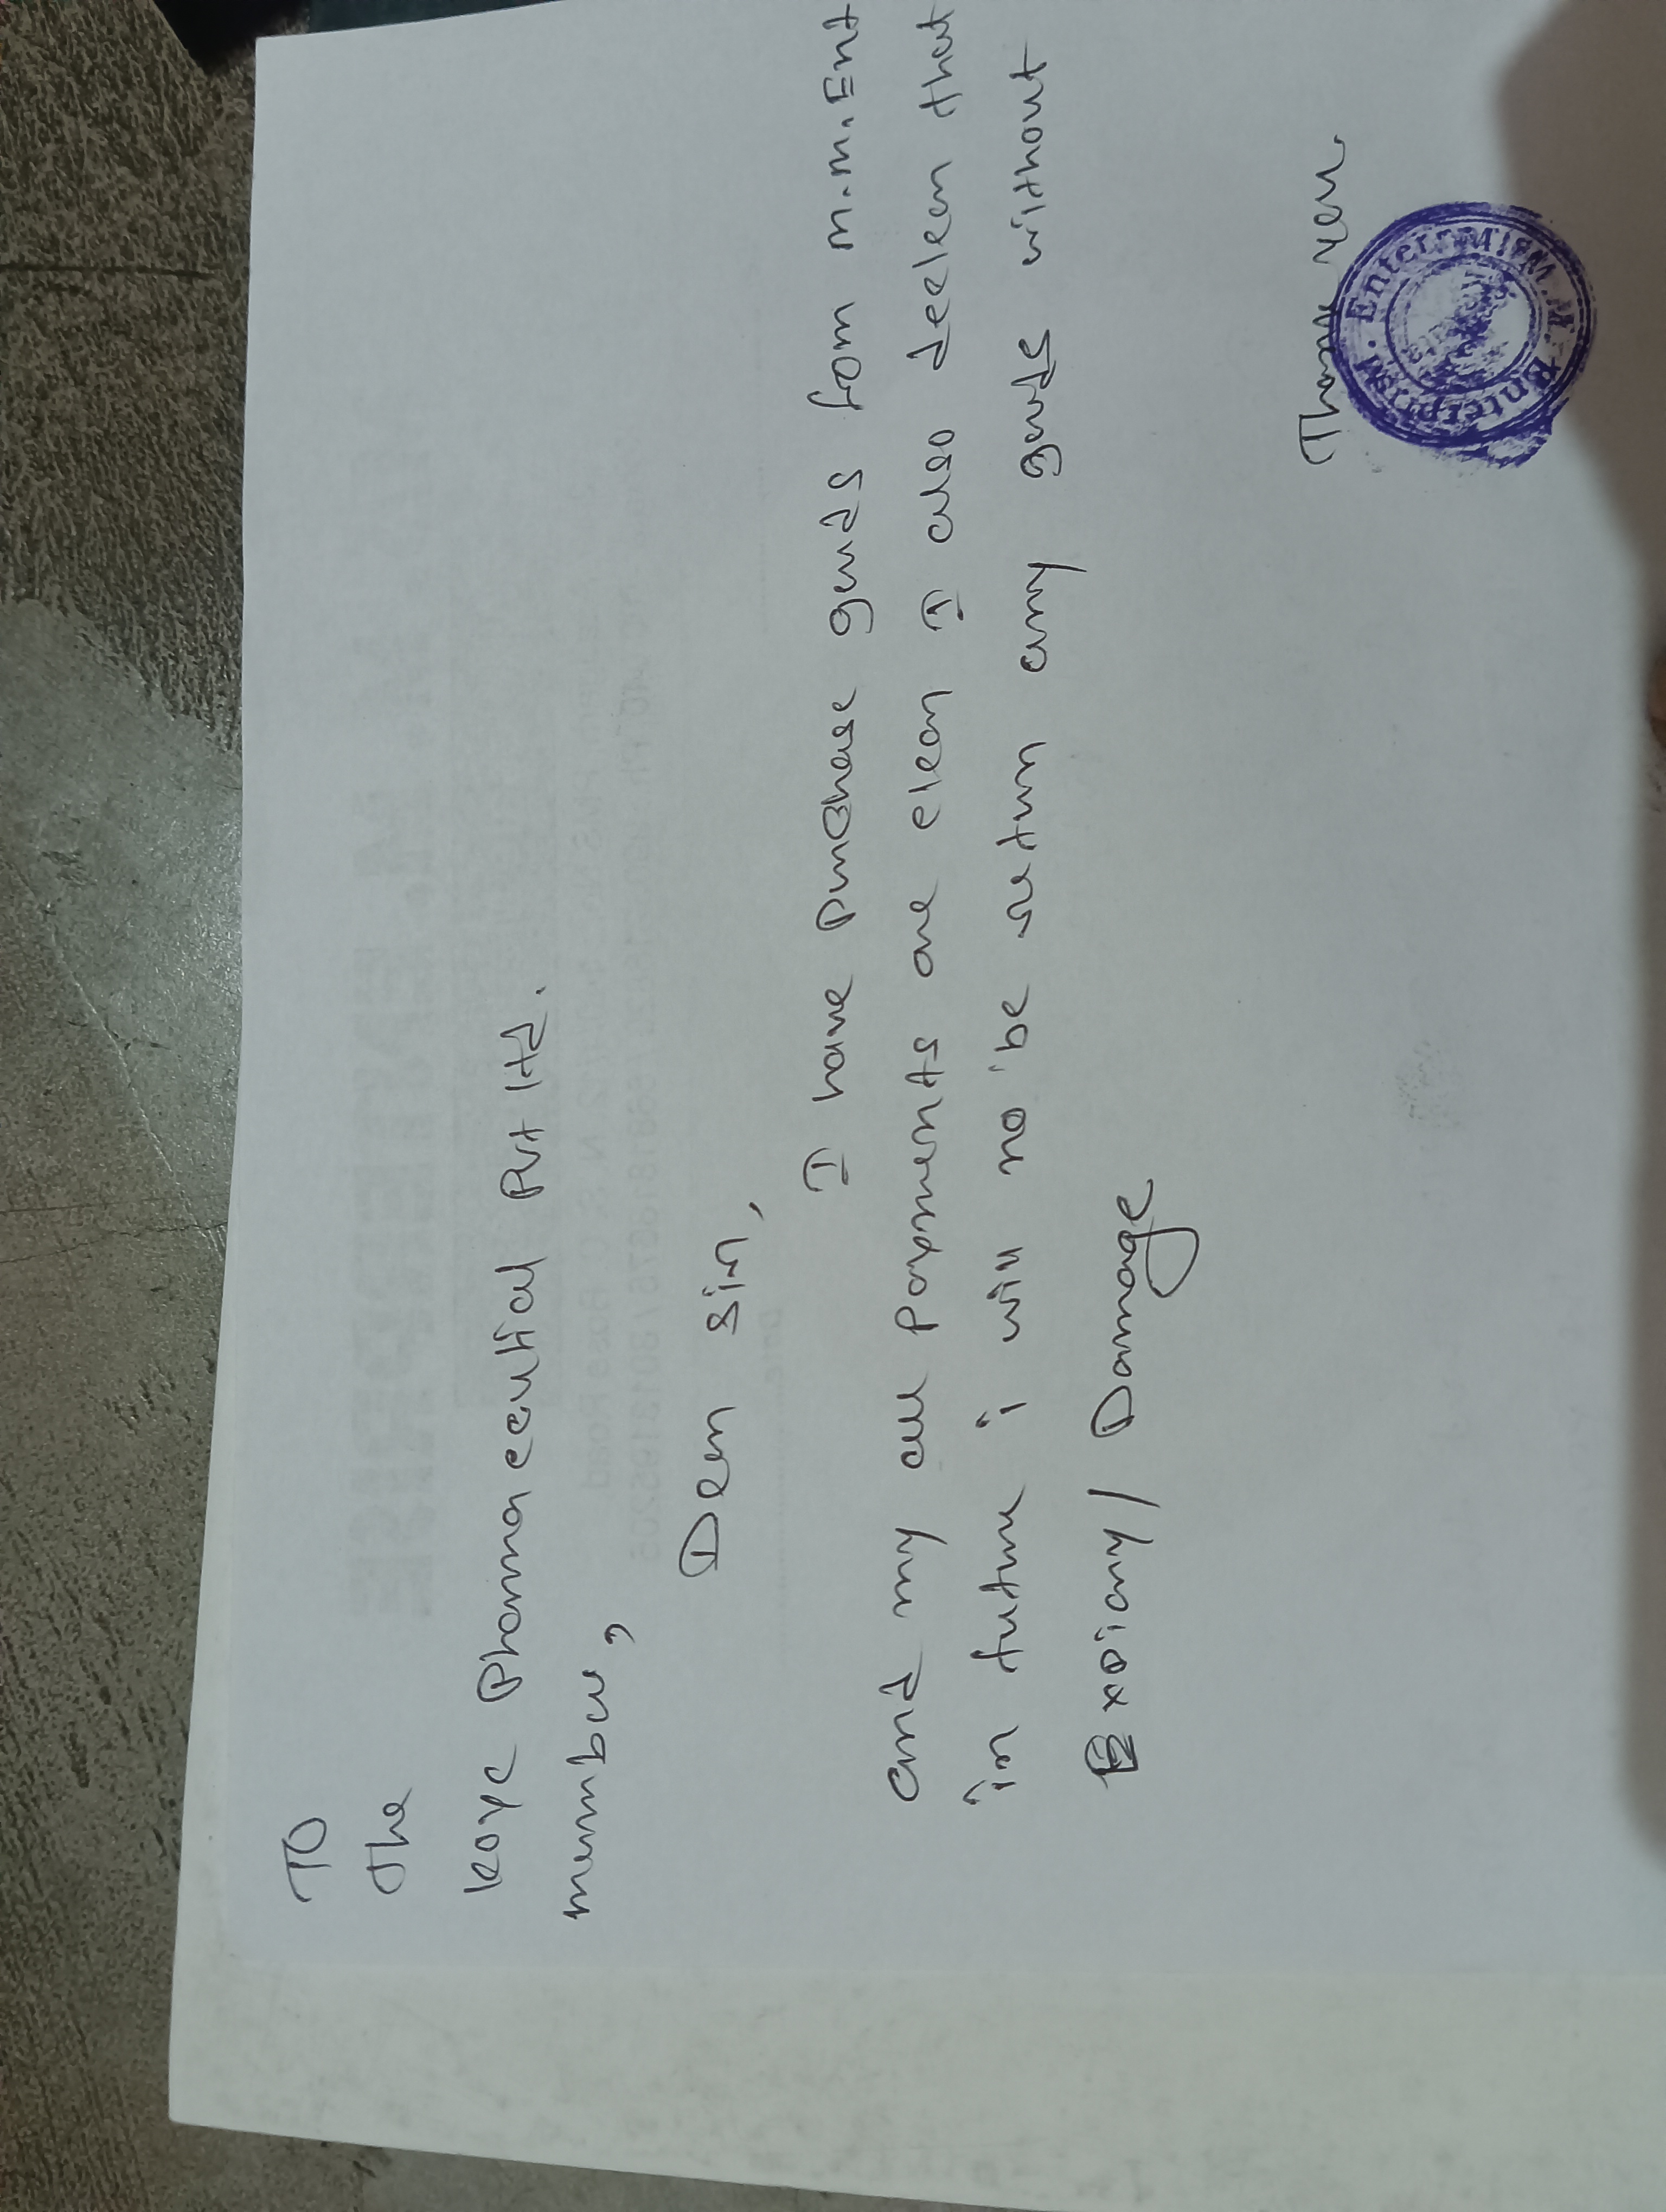 TO
the
koye Pharmaceutical Pvt ltd.
mumbai,
Dear sir,
I have purchase goods from M.M. Ent
and my all payments are clear I also declear that
in future i will no be return any goods without
Expiary / Damage
Thank you.
M.M. Enterprise